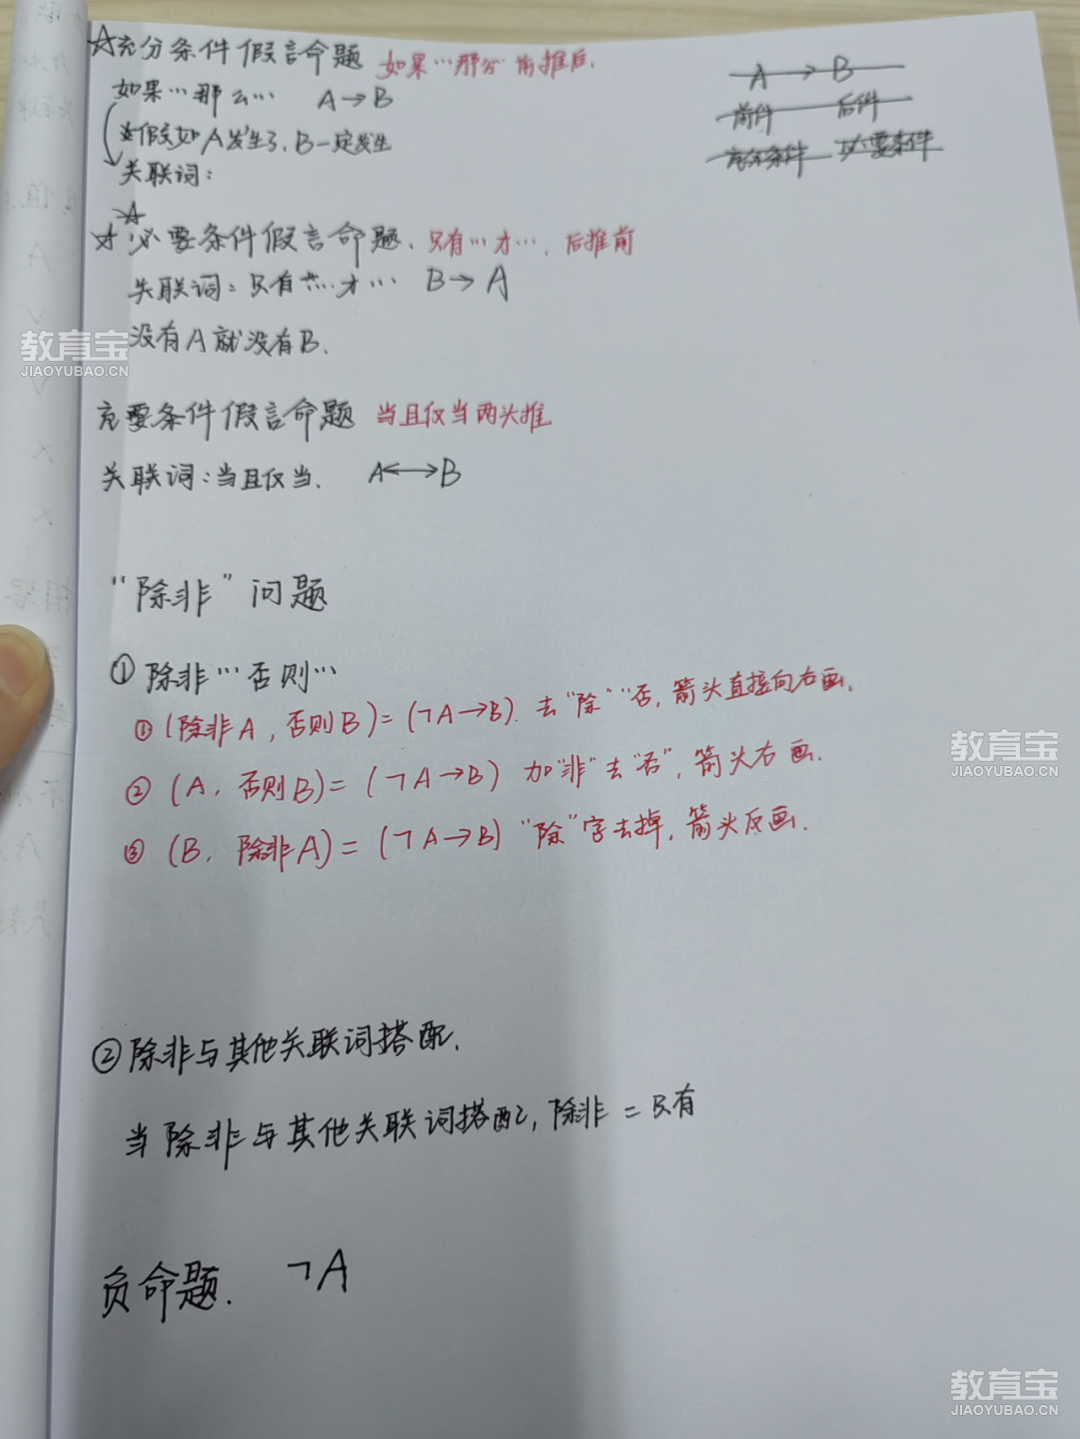 ☆充分条件假言命题 如果…那么 前推后.
如果…那么… A→B
假如A发生了、B一定发生
关联词:
A→B
前件 后件
充分条件 必要条件
☆必要条件假言命题、只有…才…、后推前
关联词:只有…才… B→A
没有A就没有B.
充要条件假言命题 当且仅当两头推
关联词:当且仅当. A↔B
“除非”问题
①除非…否则…
①(除非A,否则B)=(¬A→B). 去“除”“否,箭头直接向右画.
②(A,否则B)=(¬A→B) 加“非”去“否”,箭头右画.
③(B,除非A)=(¬A→B) “除”字去掉,箭头反画.
②除非与其他关联词搭配.
当除非与其他关联词搭配,除非=只有
负命题. ¬A
教育宝
JIAOYUBAO.CN
教育宝
JIAOYUBAO.CN
教育宝
JIAOYUBAO.CN